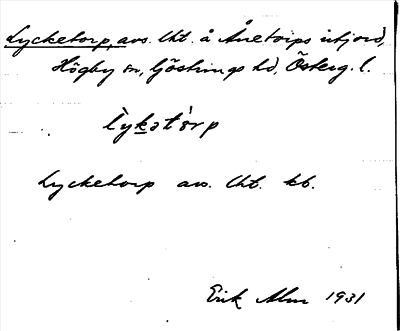 Lycketorp, avs. lht. å Ånetorps utjord,
Högby sn, Göstrings hd, Österg. l.
lỳkatórp
Lycketorp avs. lht. kb.
Erik Alm 1931